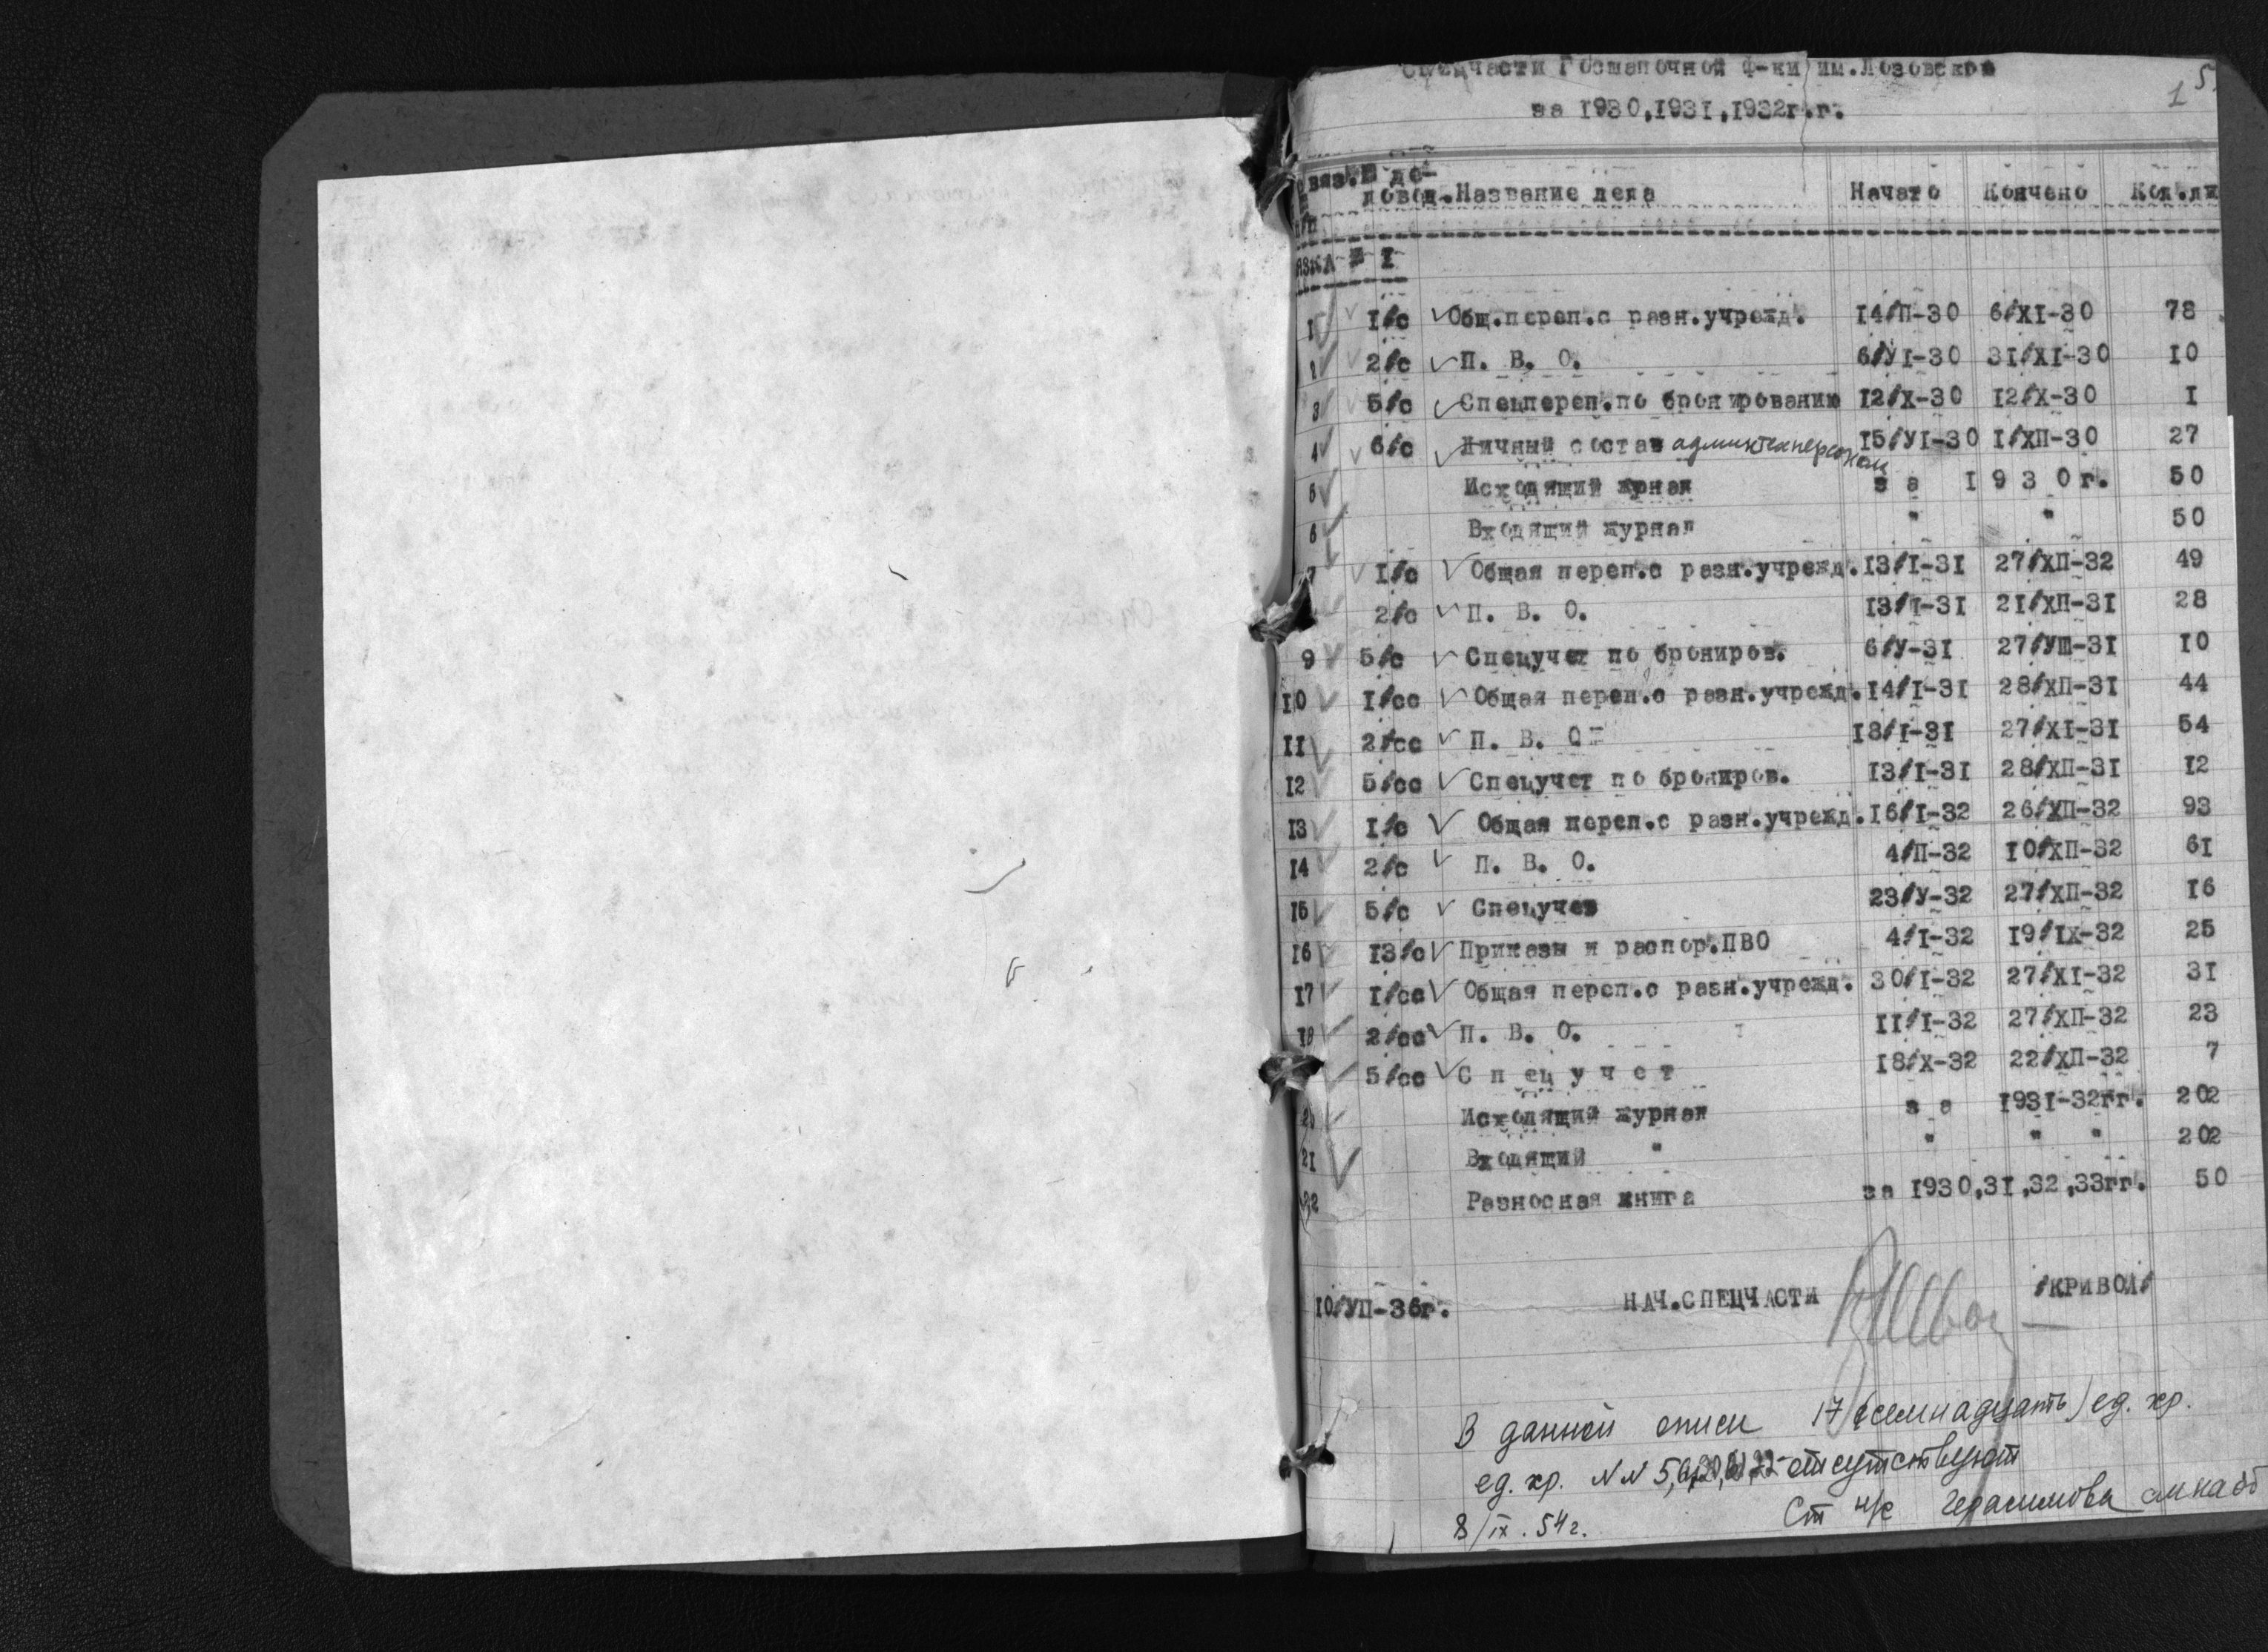 Спецчасти Госшапочной ф-ки им.Лозовского
за 1930,1931,1932г.г.
1 5
связ. № де-
довод. Название дела Начато Кончено Кол.ли
п/п
ЯЗКА № I
1 I/с Общ.переп.с разн.учрежд. 14/П-30 6/XI-30 78
2 2/с П. В. О. 6/УI-30 31/XI-30 10
3 5/с Спецпереп.по бронированию 12/X-30 12/X-30 I
4 6/с Личный состав админтехперсонал 15/УI-30 I/ХП-30 27
5 Исходящий журнал за 1930г. 50
6 Входящий журнал " " 50
7 I/с Общая переп.с разн.учрежд. 13/I-31 27/ХП-32 49
2/с П. В. О. 13/I-31 21/ХП-31 28
9 5/с Спецучет по брониров. 6/У-31 27/УШ-31 10
10 I/сс Общая переп.с разн.учрежд. 14/I-31 28/ХП-31 44
11 2/сс П. В. О 18/I-31 27/XI-31 54
12 5/сс Спецучет по брониров. 13/I-31 28/ХП-31 12
13 I/с Общая переп.с разн.учрежд. 16/I-32 26/ХП-32 93
14 2/с П. В. О. 4/П-32 10/ХП-32 61
15 5/с Спецучет 23/У-32 27/ХП-32 16
16 13/с Приказы и распор.ПВО 4/I-32 19/IX-32 25
17 I/сс Общая переп.с разн.учрежд. 30/I-32 27/XI-32 31
18 2/сс П. В. О. 11/I-32 27/ХП-32 23
5/сс С п е ц у ч е т 18/X-32 22/ХП-32 7
20 Исходящий журнал за 1931-32гг. 202
21 Входящий " " " " 202
22 Разносная книга за 1930,31,32,33гг. 50
10/УП-36г. НАЧ.СПЕЦЧАСТИ /КРИВОЙ/
В данной описи 17 (семнадцать) ед. хр.
ед. хр. NN 5,6,20,21,22 отсутствуют
8/IX.54г. Ст н/с Герасимова